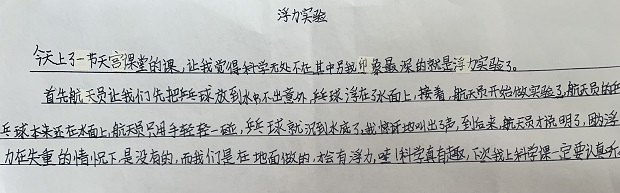 浮力实验
今天上了一节天宫课堂的课，让我觉得科学无处不在其中另我印象最深的就是浮力实验了。
首先航天员让我们先把乒乓球放到水中不出意外，乒乓球浮在了水面上，接着，航天员开始做实验了，航天员的乒
乓球本来还在水面上，航天员只用手轻轻一碰，乒乓球就沉到水底了，我惊讶地叫出了声，到后来，航天员才说明了，浮
力在失重的情况下是没有的，而我们是在地面做的，才会有浮力，哇！科学真有趣，下次我上科学课一定要认真听